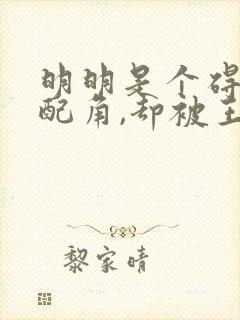 明明是个碍
配角,却被主
黎家晴